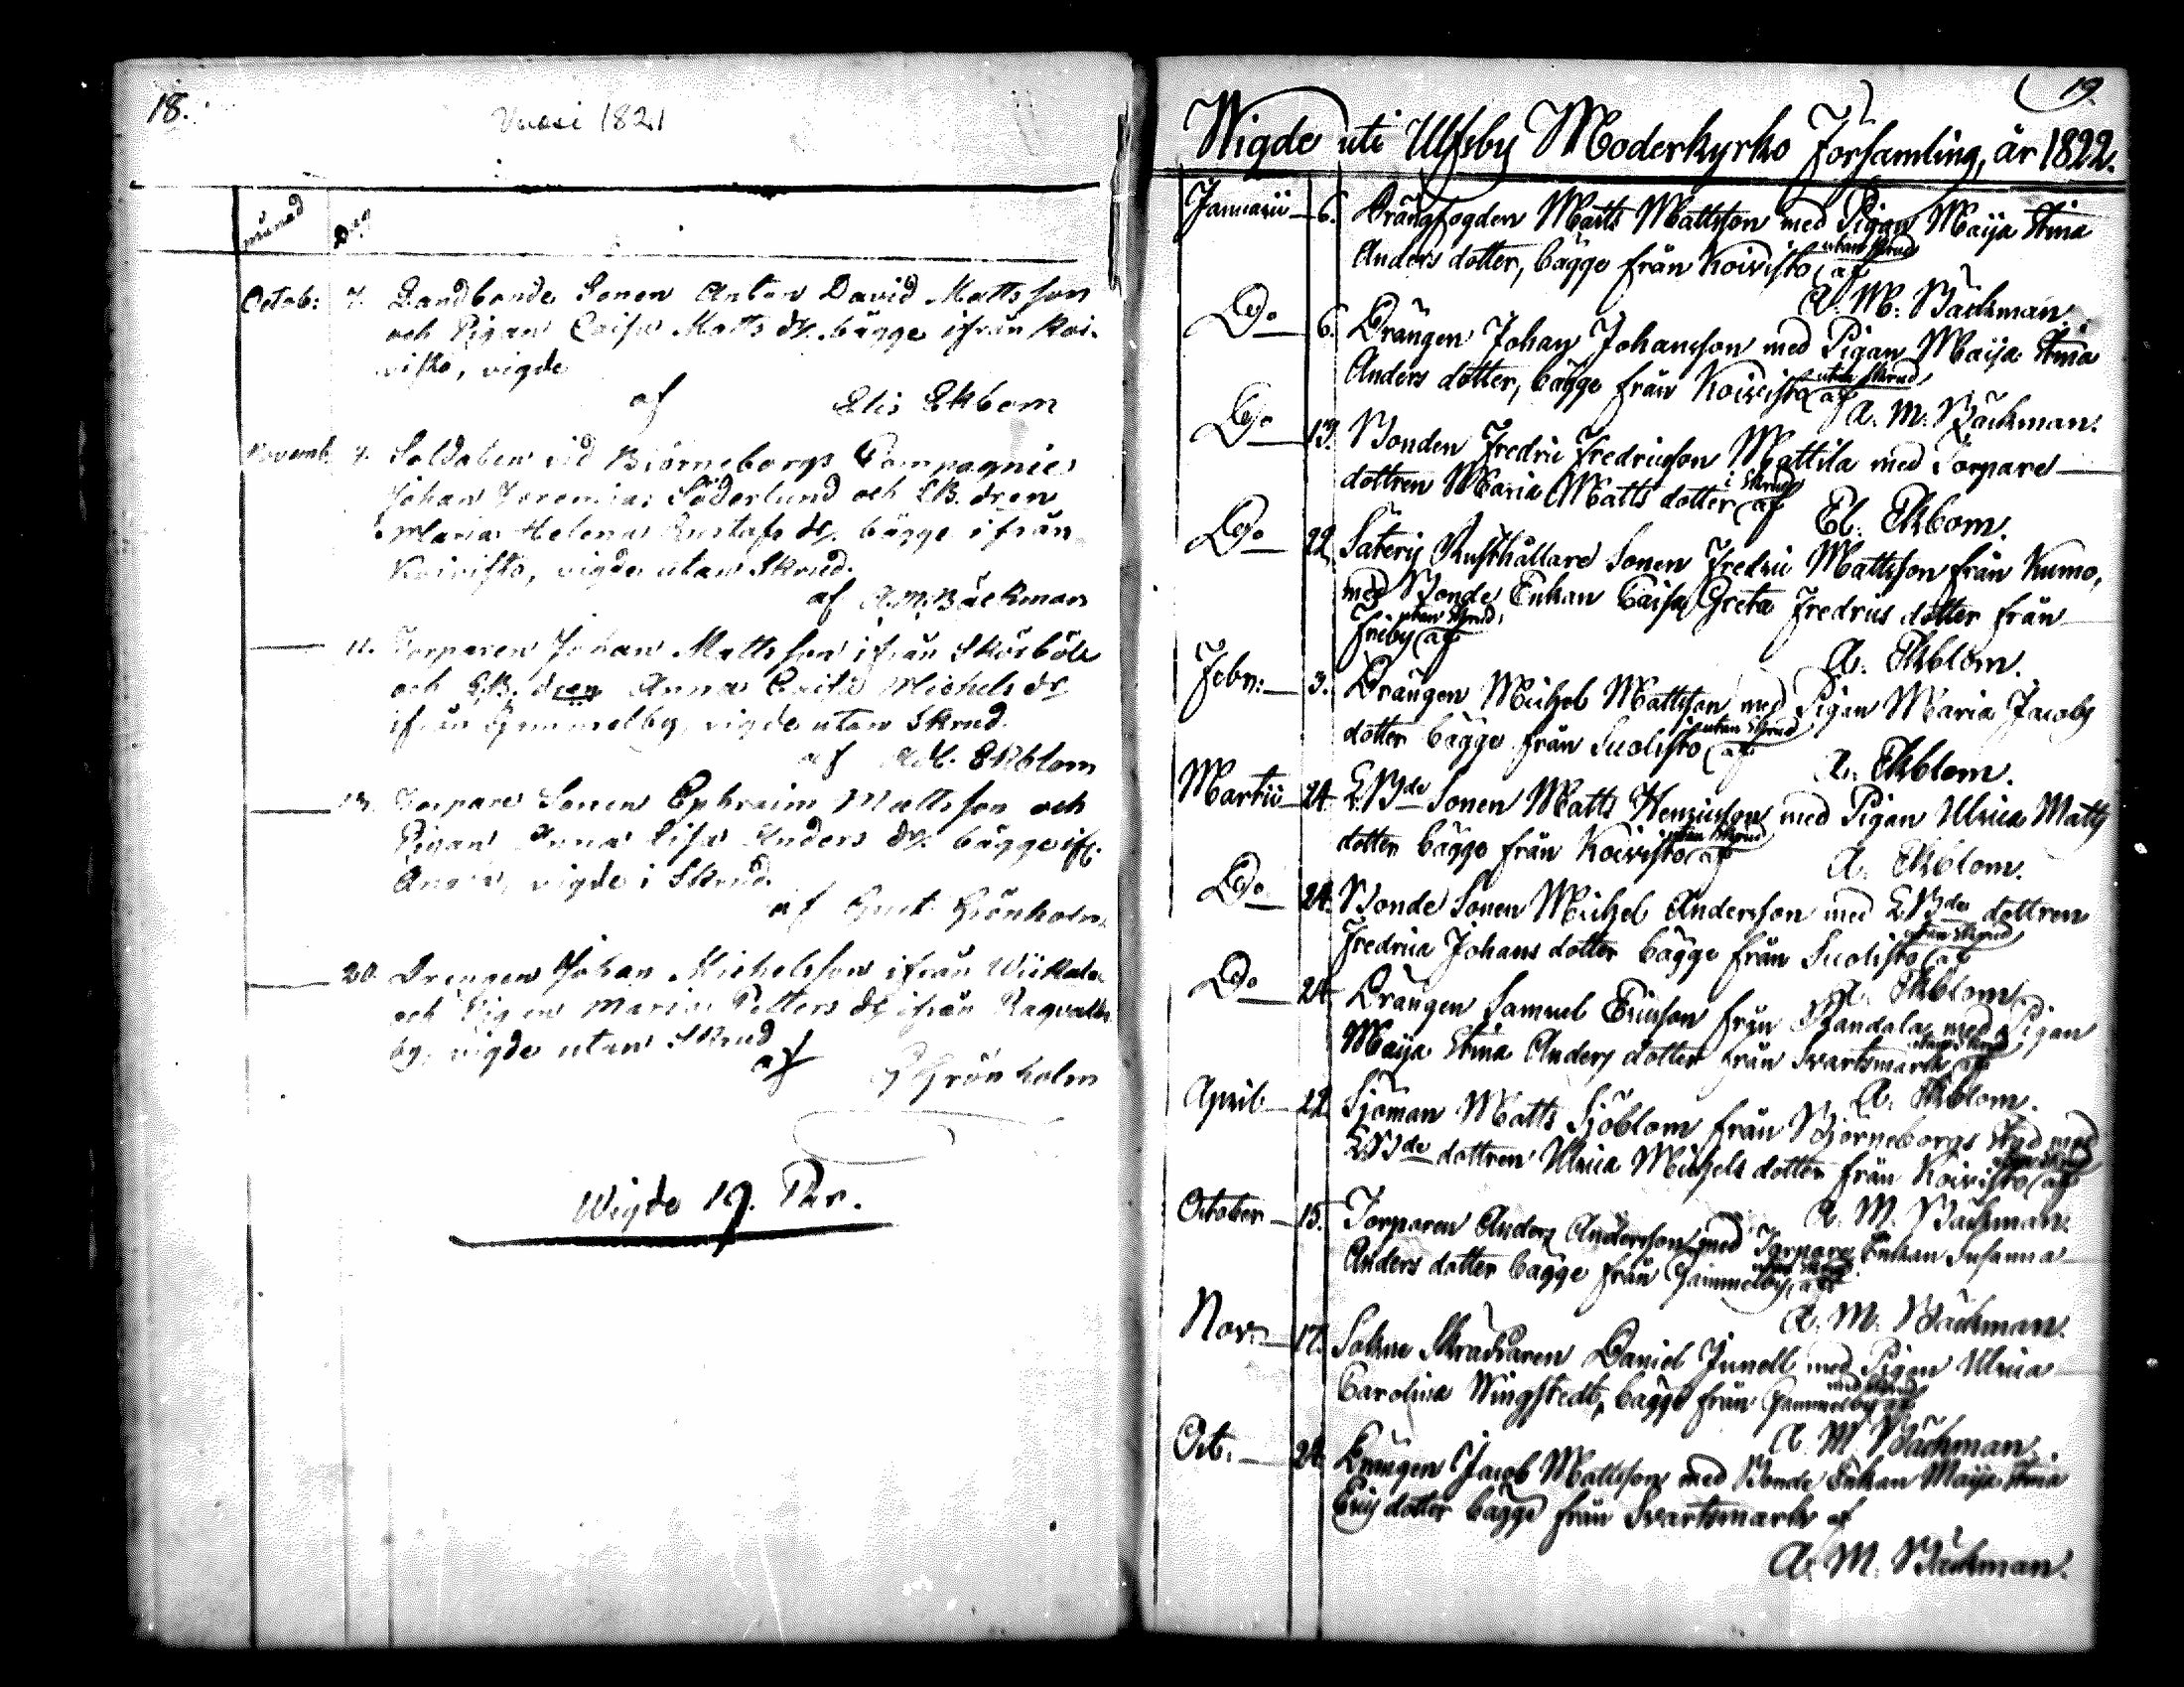 18.
Vuosi 1821
månad Dag
Octob: 7. Landbonde Sonen Anton David Mattsson
och Pigan Caisa Matts dr. bägge ifrån Koi-
visto, vigde
af Elis Ekbom
Novemb. 4. Soldaten vid Björneborgs Compagnie
Johan Jeremias Söderlund och LB. dren
Maria Helena Gustafs dr. bägge ifrån
Koivisto, vigde utan Skrud.
af A.M. Bäckman
11. Torparen Johan Mattsson ifrån Skörböle
och LB. dren Anna Michels dr
ifrån Gammelby, vigde utan Skrud.
af Ad. Ekblom
Torpare Sonen Ephraim Mattsson och
Pigan Anna Lisa Anders dr. bägge ifr.
vigde i Skrud
af Gust. Grönholm
20. Drengen Johan Michelsson ifrån Wiikala
och Pigan Maria Petters dr ifrån Ragvalds
by, vigde utan Skrud
af G Grönholm
Wigde 19. Par.
19.
Wigde uti Ulfsby Moderkyrko Församling, år 1822.
Januarii 6. Drängfogden Matts Mattsson med Pigan Maija Stina
Anders dotter, bägge från Koivisto utan skrud af
A. M. Bäckman.
Do 6. Drängen Johan Johansson med Pigan Maija Stina
Anders dotter, bägge från Koivisto utan skrud af
A. M. Bäckman.
Do 13. Bonden Fredric Fredricsson Mattila med Torpare
dottren Maria Matts dotter i skrud af
El. Ekbom.
Do 22. Säterij Rusthållare Sonen Fredric Mattsson från Kumo,
med Bonde Enkan Caisa Greta Fredrics dotter från
Friby utan skrud, af
A. Ekblom.
Febr: 3. Drängen Michel Mattsson med Pigan Maria Jacobs
dotter bägge från Suolisto utan skrud af
A. Ekblom.
Martii 24. LBde Sonen Matts Henricsson med Pigan Ulrica Matts
dotter bägge från Koivisto utan skrud af
A. Ekblom.
Do 24. Bonde Sonen Michel Andersson med LBde dottren
Fredrica Johans dotter bägge från Suolisto utan skrud af
A. Ekblom.
Do 24. Drängen Samuel Ericsson från med Pigan
Maija Stina Anders dotter från Svartsmark utan skrud af
A. Ekblom.
April 22. Sjöman Matts Sjöblom från Björneborgs Stad med
LBde dottren Ulrica Michels dotter från Koivisto utan skrud af
A. M. Bäckman.
October 15. Torparen Anders Andersson med Torpare Enkan Susanna
Anders dotter bägge från Gammelby, utan skrud af
A. M. Bäckman.
Nov: 17. Sokne Skräddaren Daniel Junell med Pigan Ulrica
Carolina Wingstedt, bägge från Gammelby med skrud af
A. M. Bäckman.
Oct. 24. Drängen Jacob Mattsson med Bonde Enkan Maija Stina
Erics dotter bägge från Svartsmark af
A. M. Bäckman.